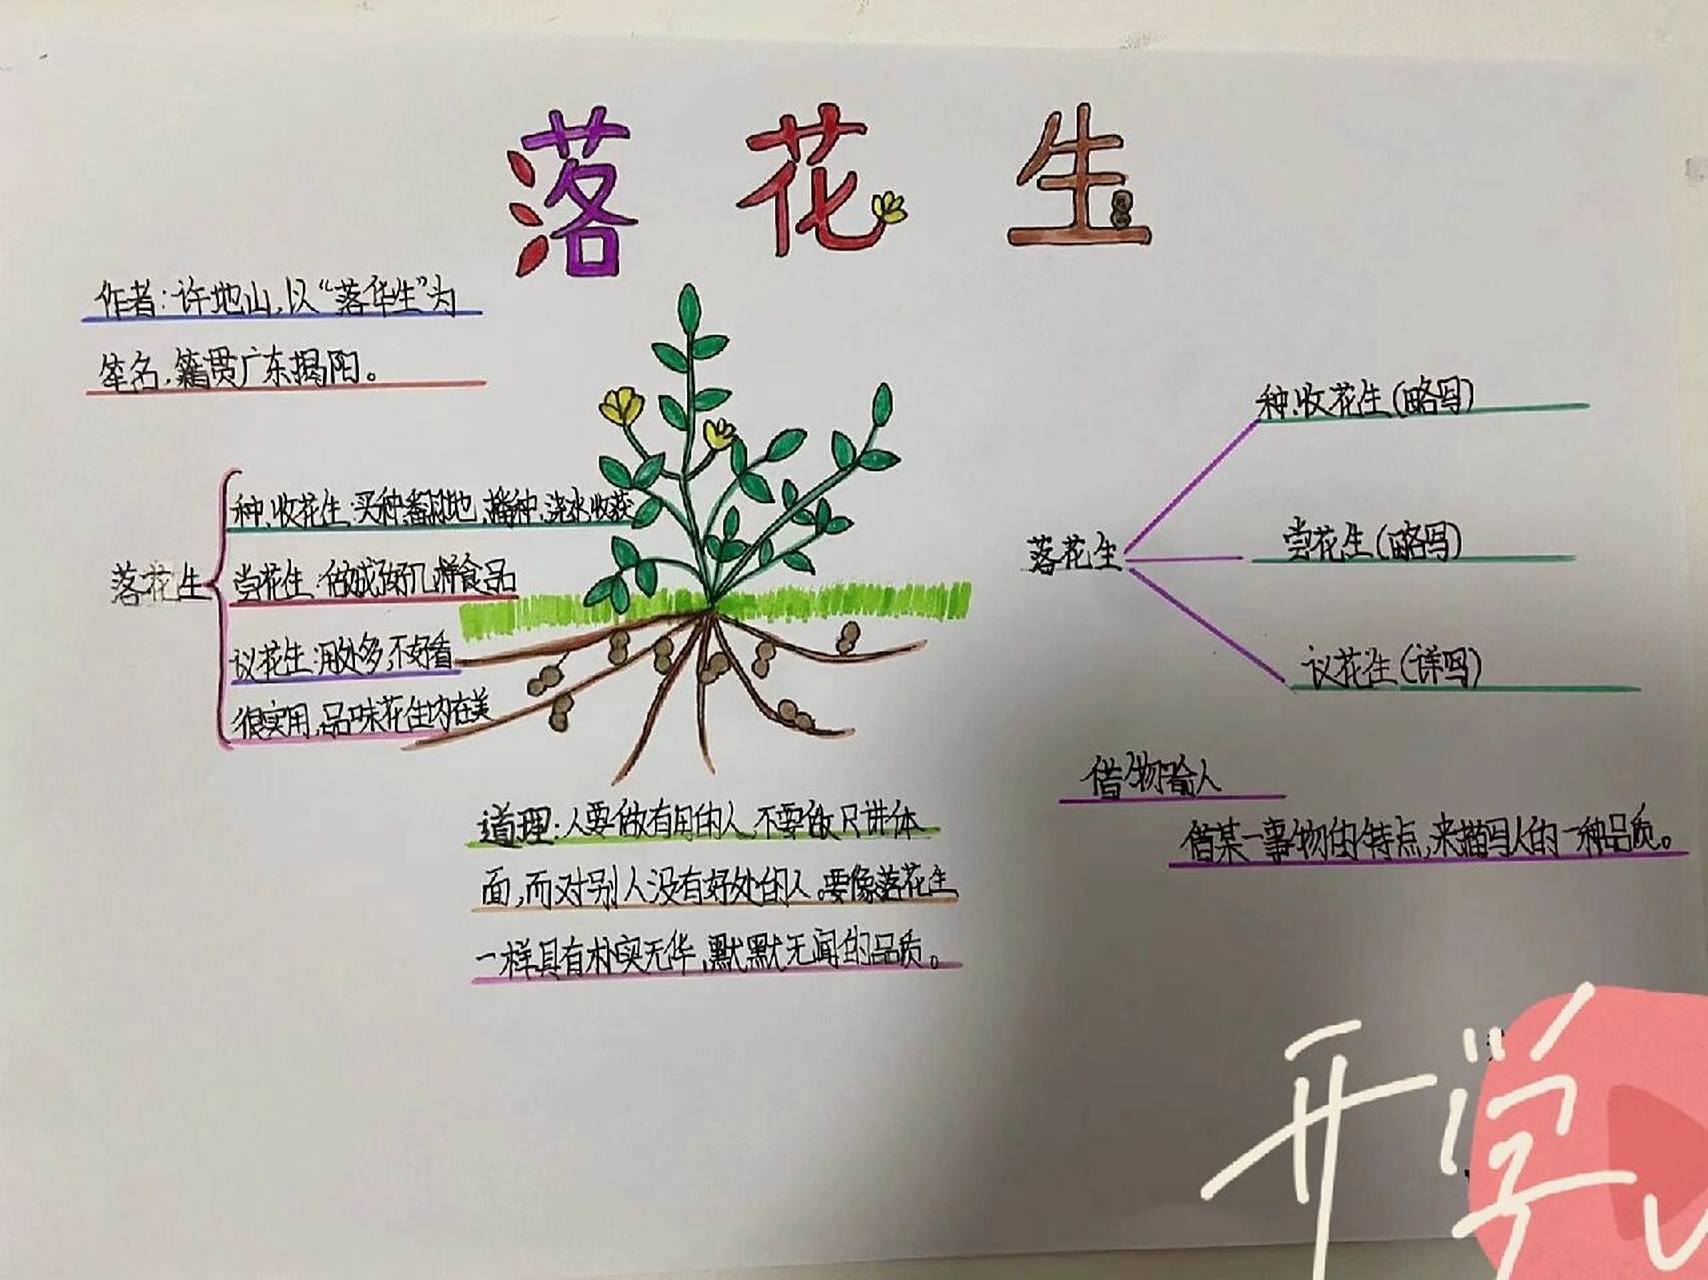 落花生
作者:许地山,以“落华生”为
笔名,籍贯广东揭阳。
落花生
种、收花生:买种,翻地,播种,浇水,收获
尝花生:做成好几样食品
议花生:用处多,不好看
很实用,品味花生内在美
道理:人要做有用的人,不要做只讲体
面,而对别人没有好处的人。要像落花生
一样具有朴实无华,默默无闻的品质。
落花生
种、收花生(略写)
尝花生(略写)
议花生(详写)
借物喻人
借某一事物的特点,来描写人的一种品质。
开学